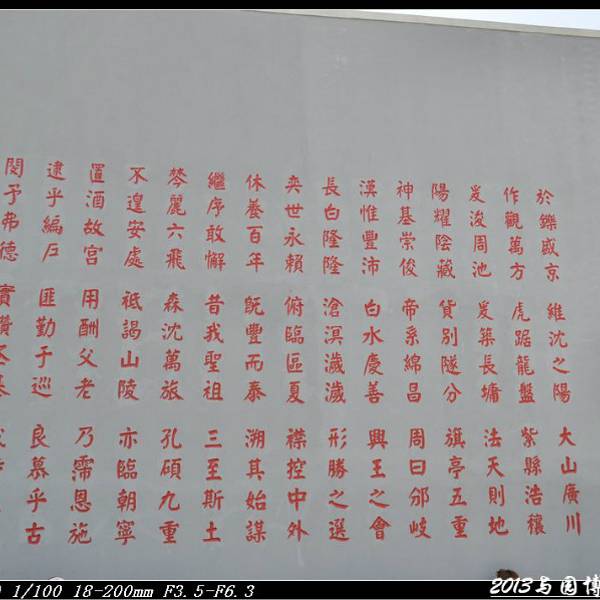 於鑠盛京 維沈之陽 大山廣川
作觀萬方 虎踞龍盤 紫縣浩穰
爰浚周池 爰築長墉 法天則地
陽耀陰藏 貨別隧分 旗亭五重
神基崇俊 帝系綿昌 周曰邠岐
漢惟豐沛 白水慶善 興王之會
長白隆隆 滄溟濊濊 形勝之選
奕世永賴 俯臨區夏 襟控中外
休養百年 既豐而泰 溯其始謀
繼序敢懈 昔我聖祖 三至斯土
棽麗六飛 森沈萬旅 孔碩九重
不遑安處 祗謁山陵 亦臨朝寧
置酒故宮 用酬父老 乃霈恩施
逮乎編戶 匪勤于巡 良慕乎古
閔予弗德 實纘丕基
1/100 18-200mm F3.5-F6.3
2013与园博